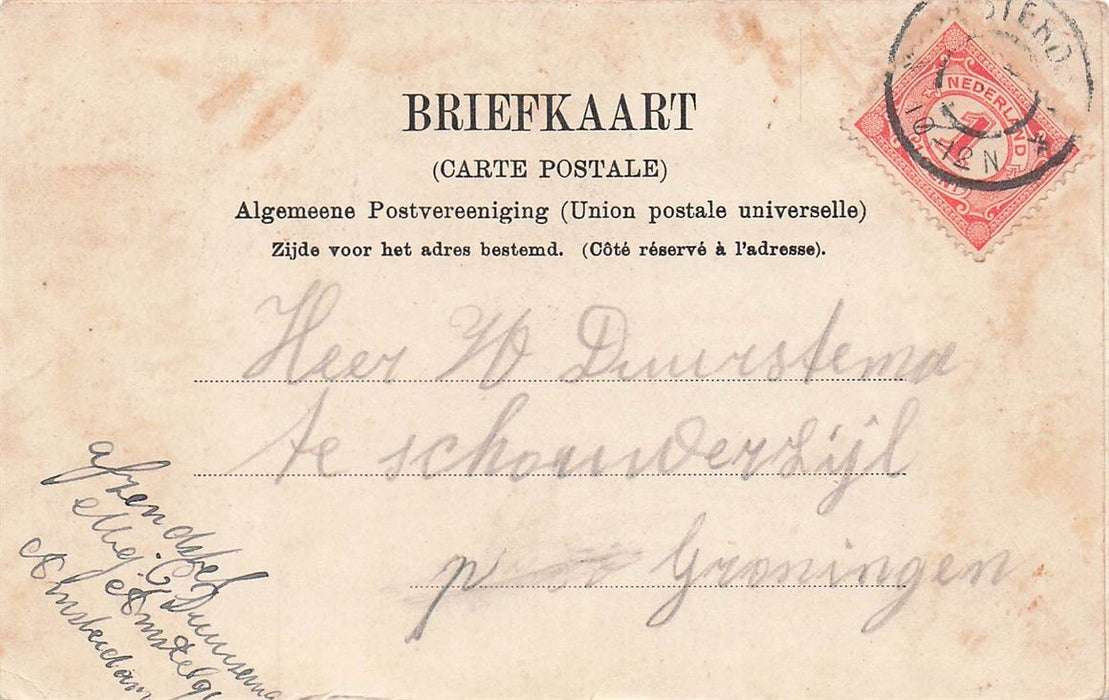 BRIEFKAART
(CARTE POSTALE)
Algemeene Postvereeniging (Union postale universelle)
Zijde voor het adres bestemd. (Côté réservé à l'adresse).
NEDERLAND
1
CENT
STERD
10-12 N
Heer W Duurstema
te schouderzijl
p Groningen
Mej.
Amsterdam